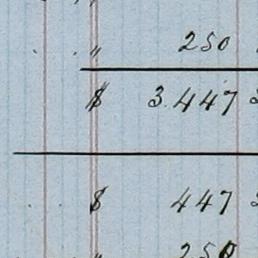 " 250
$ 3.447
$ 447
" 250